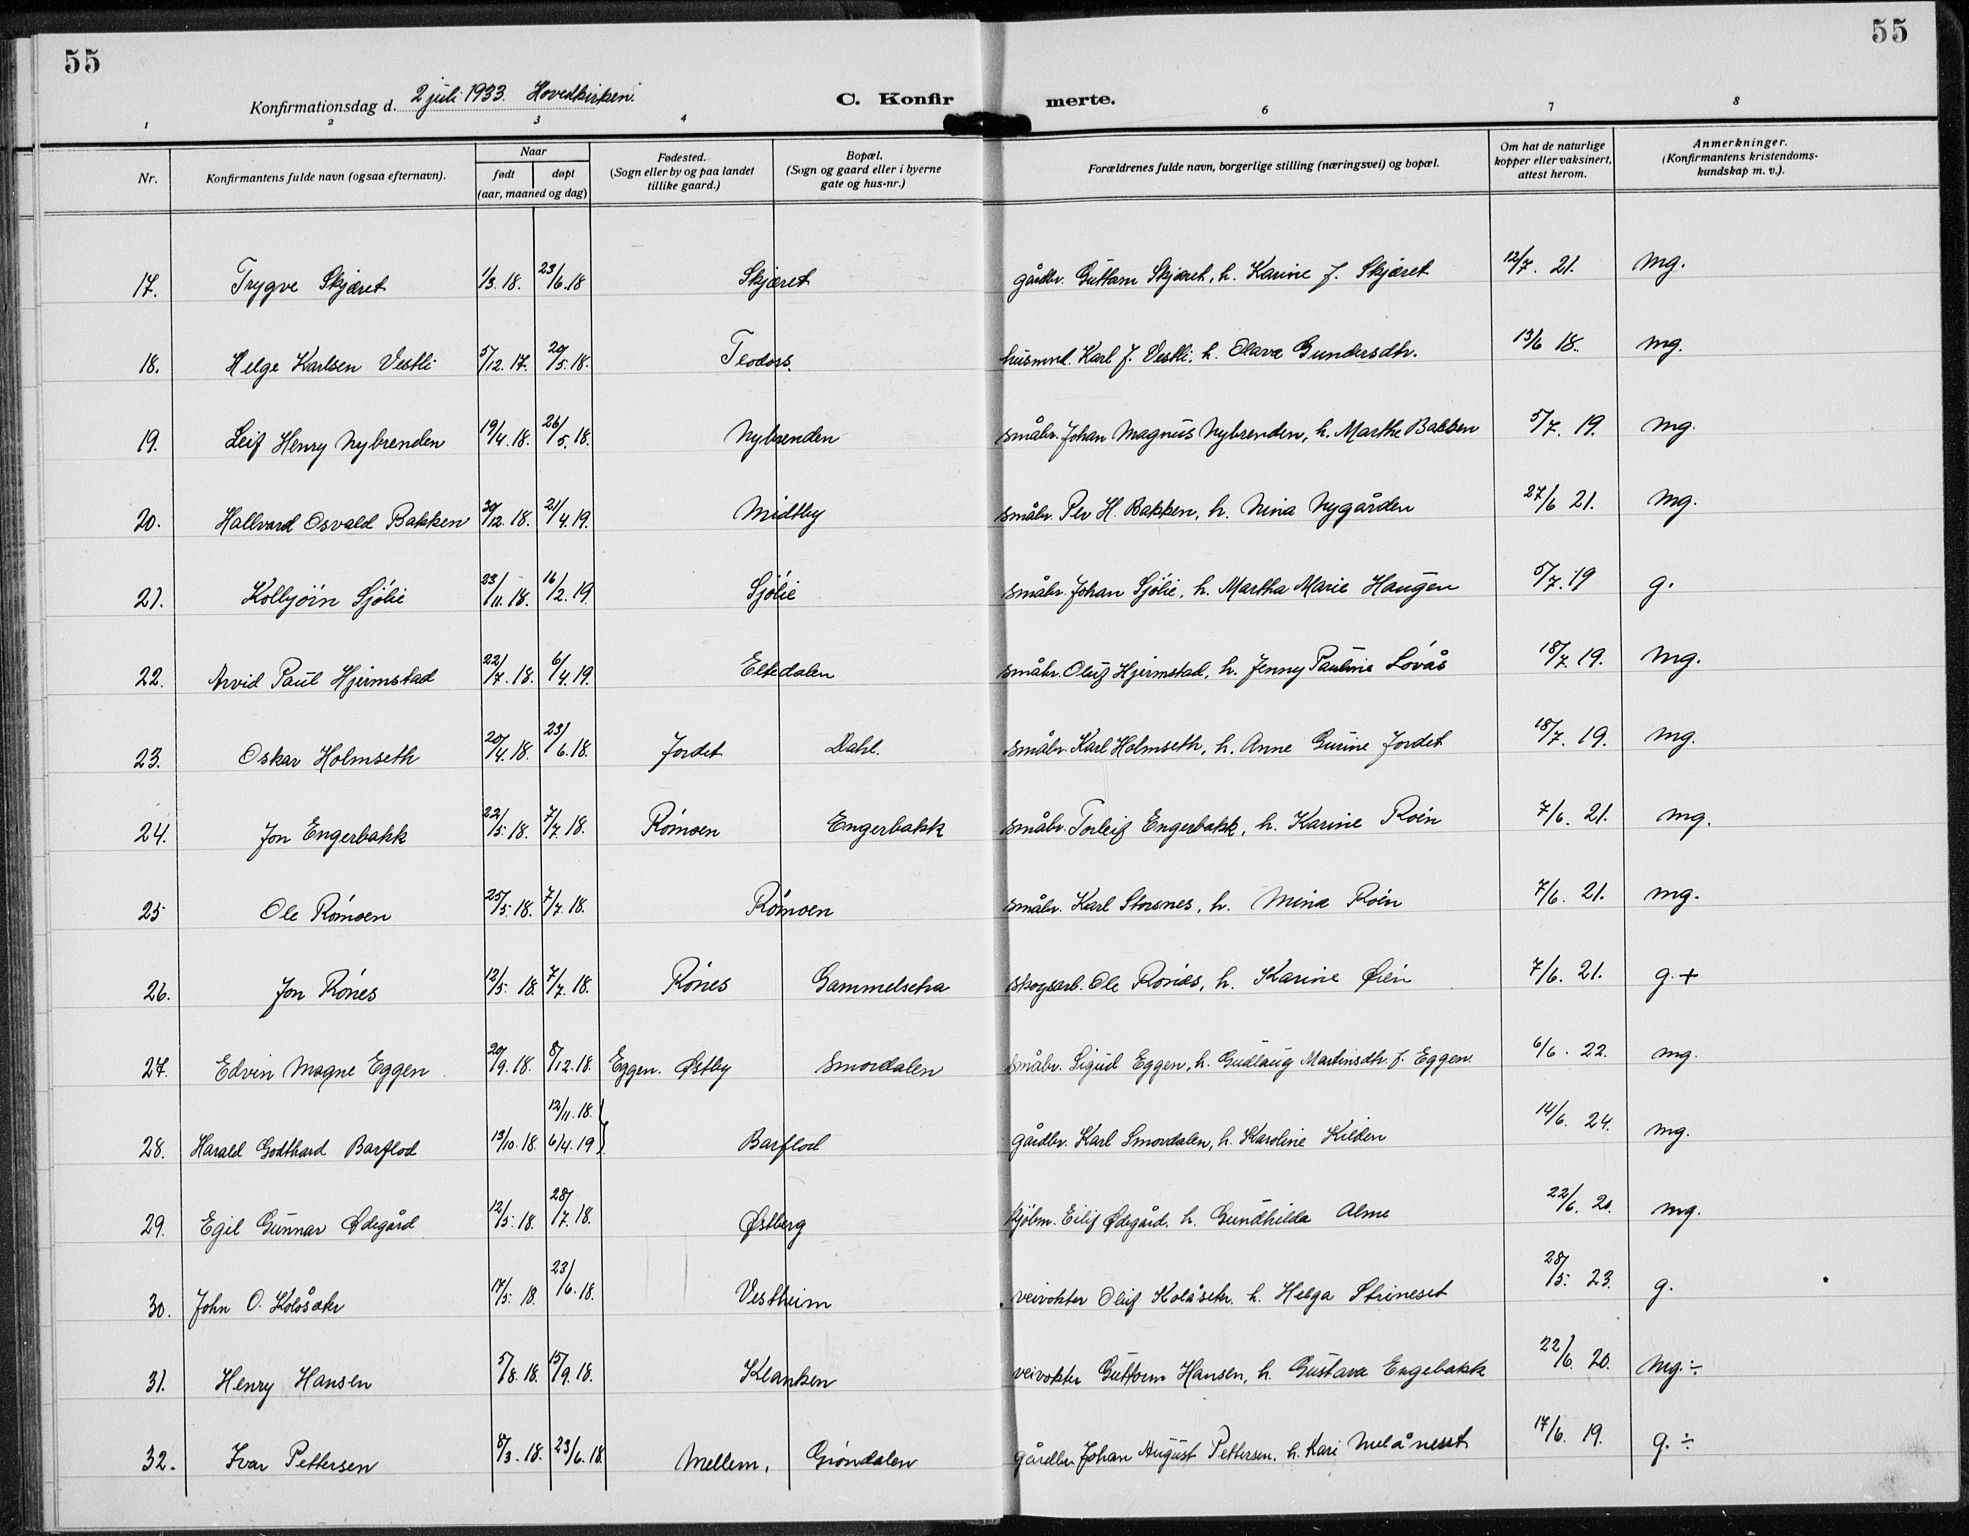 55
55
Konfirmationsdag d. 2 juli 1933. Hovedkirken.
C. Konfirmerte.
1 2 3 4 6 7 8
Nr.
Konfirmantens fulde navn (ogsaa efternavn).
Naar
født
døpt
(aar, maaned og dag)
Fødested.
(Sogn eller by og paa landet
tillike gaard.)
Bopæl.
(Sogn og gaard eller i byerne
gate og hus-nr.)
Forældrenes fulde navn, borgerlige stilling (næringsvei) og bopæl.
Om hat de naturlige
kopper eller vaksinert,
attest herom.
Anmerkninger.
(Konfirmantens kristendoms-
kundskap m. v.).
17. Trygve Skjæret 1/3. 18. 23/6. 18 Skjæret gårdbr. Guttorm Skjæret, h. Karine f. Skjæret 12/7. 21. mg.
18. Helge Karlsen Vestli 5/12. 17. 20/5. 18. Teodors. husmnd. Karl J. Vestli, h. Olava Gundersdtr. 13/6 18. mg.
19. Leif Henry Nybrenden 19/4. 18. 26/5. 18. Nybrenden småbr. Johan Magnus Nybrenden, h. Marthe Bakken 5/7. 19. mg.
20. Hallvard Osvald Bakken 30/12. 18. 21/4. 19. Midtby småbr. Per H. Bakken, h. Nina Nygården 27/6 21. mg.
21. Kolbjörn Sjölie 23/11. 18. 16/2. 19. Sjölie småbr. Johan Sjölie, h. Martha Marie Haugen 5/7. 19 g.
22. Arvid Paul Hjermstad 22/7. 18. 6/4. 19. Eltedalen småbr. Oluf Hjermstad, h. Jenny Pauline Lövås 18/7. 19. mg.
23. Oskar Holmseth 20/4. 18. 23/6. 18. Jordet Dahl. småbr. Karl Holmseth, h. Anne Gurine Jordet 18/7. 19. mg.
24. Jon Engerbakk 22/5. 18. 7/7. 18. Römoen Engerbakk småbr. Torleif Engerbakk, h. Karine Röen 7/6. 21. mg.
25 Ole Römoen 25/5. 18. 7/7. 18. Römoen småbr. Karl Storsnes, h. Mina Röen 7/6. 21. mg.
26. Jon Rönes 12/5. 18. 7/7. 18. Rönes Gammelsetra skogsarb. Ole Rönes, h. Karine Øien 7/6. 21. g. +
27. Edvin Magne Eggen 20/9. 18. 8/12. 18. Eggen. Østby Smordalen småbr. Sigud Eggen, h. Gudlaug Martinsdtr. f. Eggen. 6/6. 22. mg.
12/11. 18. }
28. Harald Godthard Barflod 13/10. 18 6/4. 19 } Barflod gårdbr. Karl Smordalen, h. Karoline Kilden 14/6. 24. mg.
29. Egil Gunnar Ødegård 12/5. 18. 28/7. 18. Østberg kjölm. Eilif Ødegård. h. Gundhilda Alme 22/6. 20. mg.
30. John O. Kolåsætr 17/5. 18. 23/6. 18. Vestheim veivokter Oluf Kolåsetr. h. Helga Strineset 28/5. 23. g.
31. Henry Hansen 5/8. 18. 15/9. 18. Klanken veivokter Guttorm Hansen, h. Gustava Engebakk 22/6. 20. mg. ÷
32. Ivar Pettersen 8/3. 18. 23/6. 18. Mellem. Gröndalen gårdbr. Johan August Pettersen, h. Kari Melåneset 17/6. 19. g. ÷